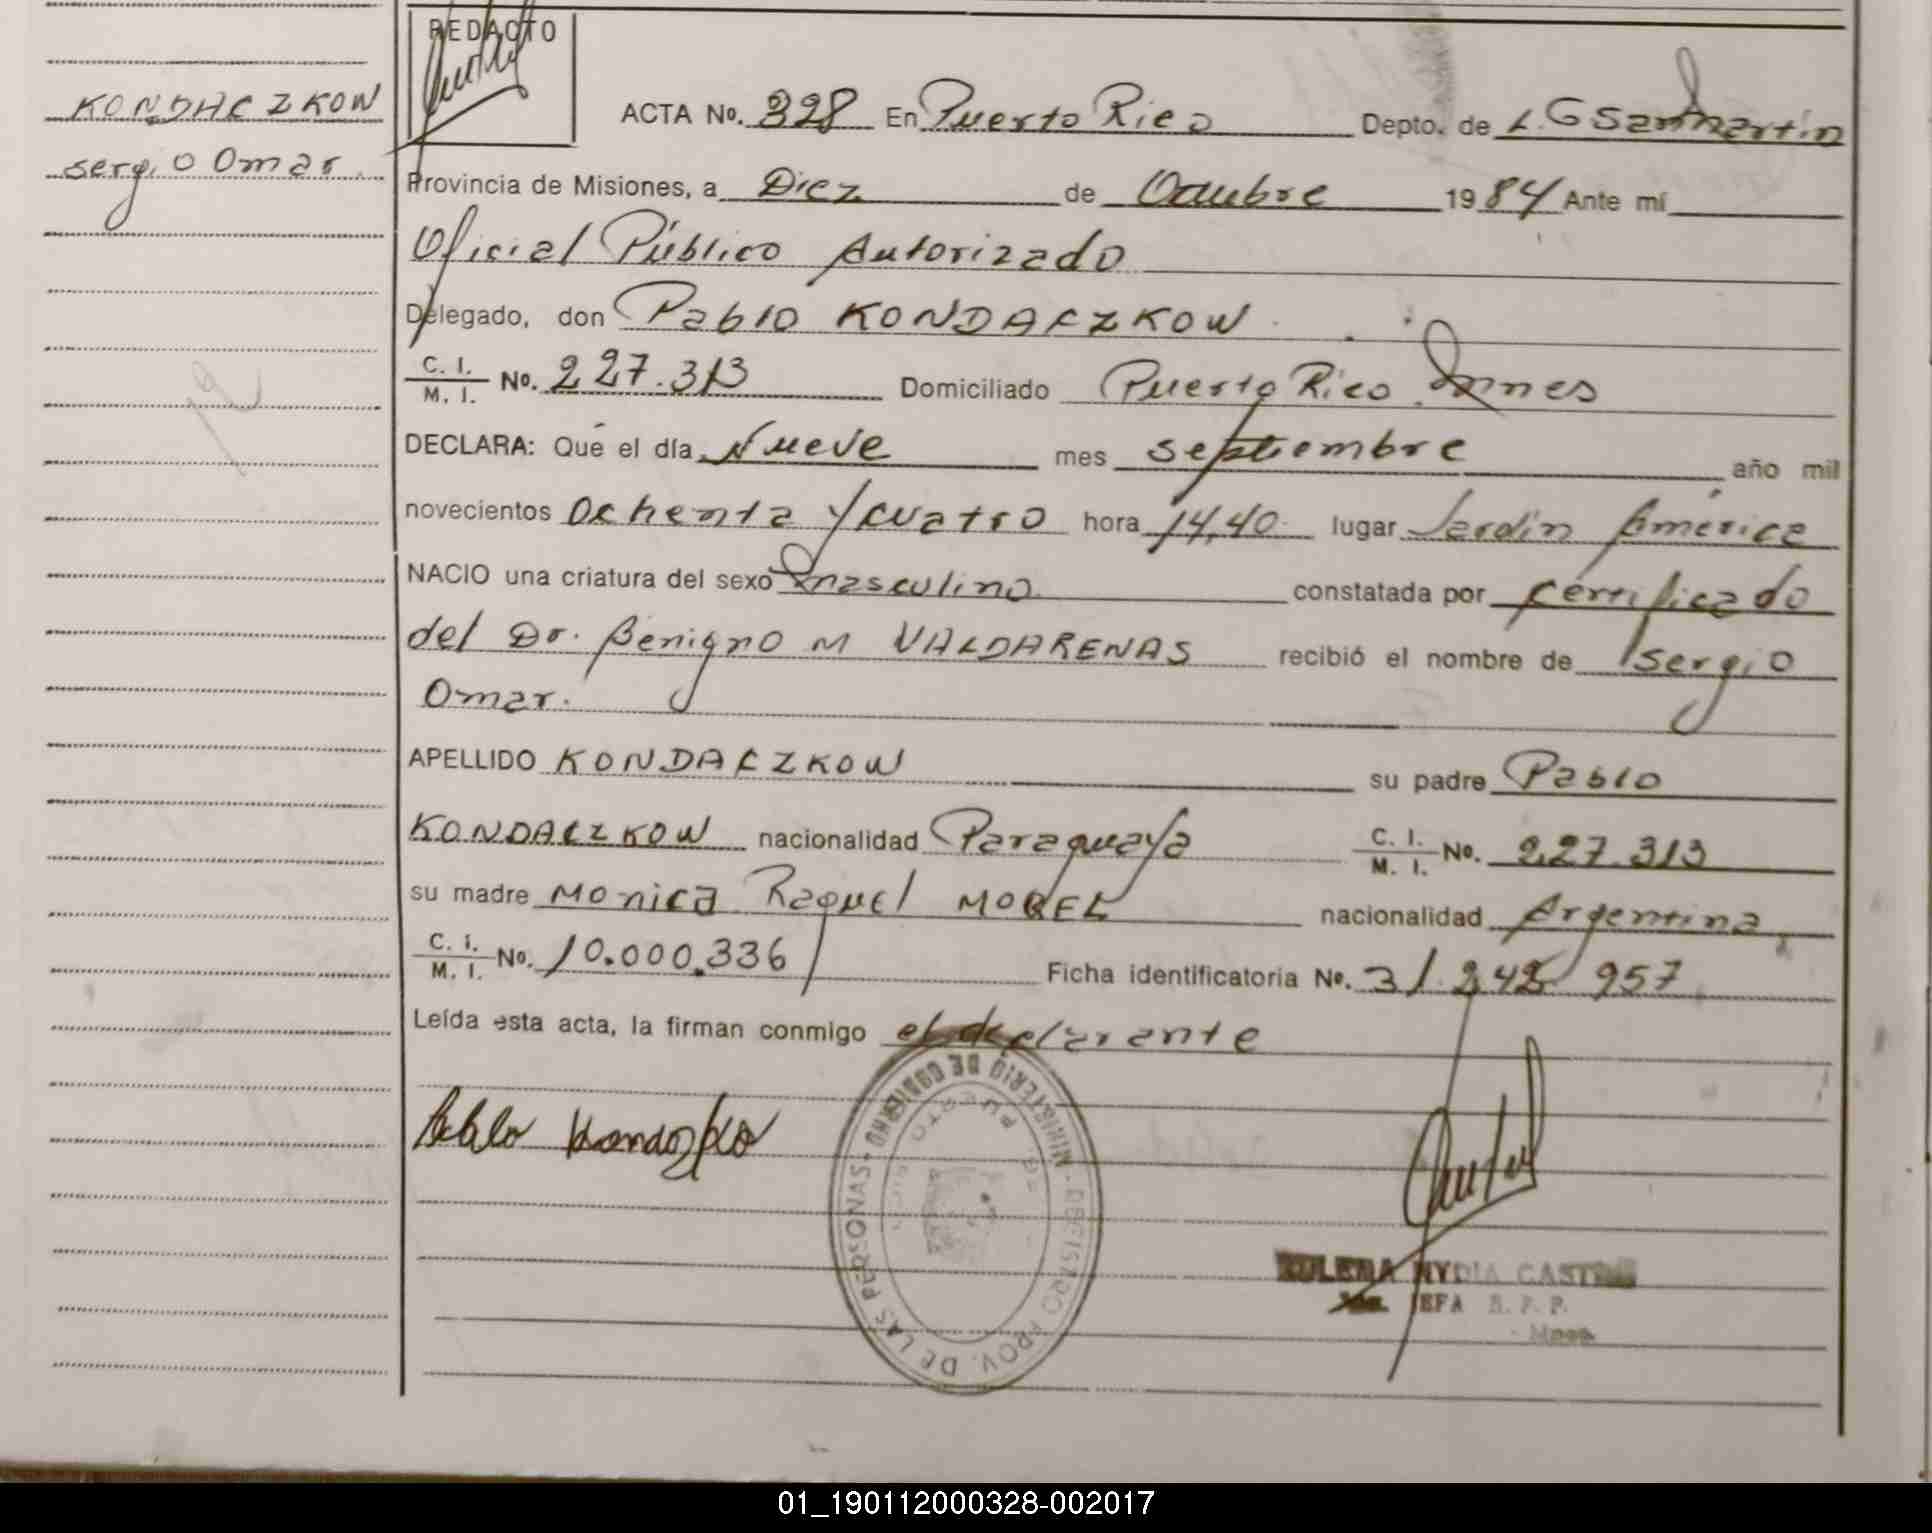 REDACTO
KONDACZKOW
sergio Omar.
ACTA No. 328 En Puerto Rico Depto. de L.G San Martin
Provincia de Misiones, a Diez de Octubre 1984 Ante mí
Oficial Público Autorizado
Delegado, don Pablo KONDACZKOW
C. I. / M. I. No. 227.313 Domiciliado Puerto Rico. Mnes
DECLARA: Que el día Nueve mes septiembre año mil
novecientos Ochenta y cuatro hora 14,40 lugar Jardín América
NACIO una criatura del sexo masculino constatada por certificado
del Dr. Benigno M VALDARENAS recibió el nombre de Sergio
Omar.
APELLIDO KONDACZKOW su padre Pablo
KONDACZKOW nacionalidad Paraguaya C. I. / M. I. No. 227.313
su madre Monica Raquel MOREL nacionalidad Argentina
C. I. / M. I. No. 10.000.336 Ficha identificatoria No. 31.242 957
Leída esta acta, la firman conmigo el declarante
MINISTERIO DE GOBIERNO - REGISTRO PROV. DE LAS PERSONAS
PUERTO RICO
Pablo
ZULEMA NYDIA CASTRO
JEFA R. P. P.
Mnes
01_190112000328-002017